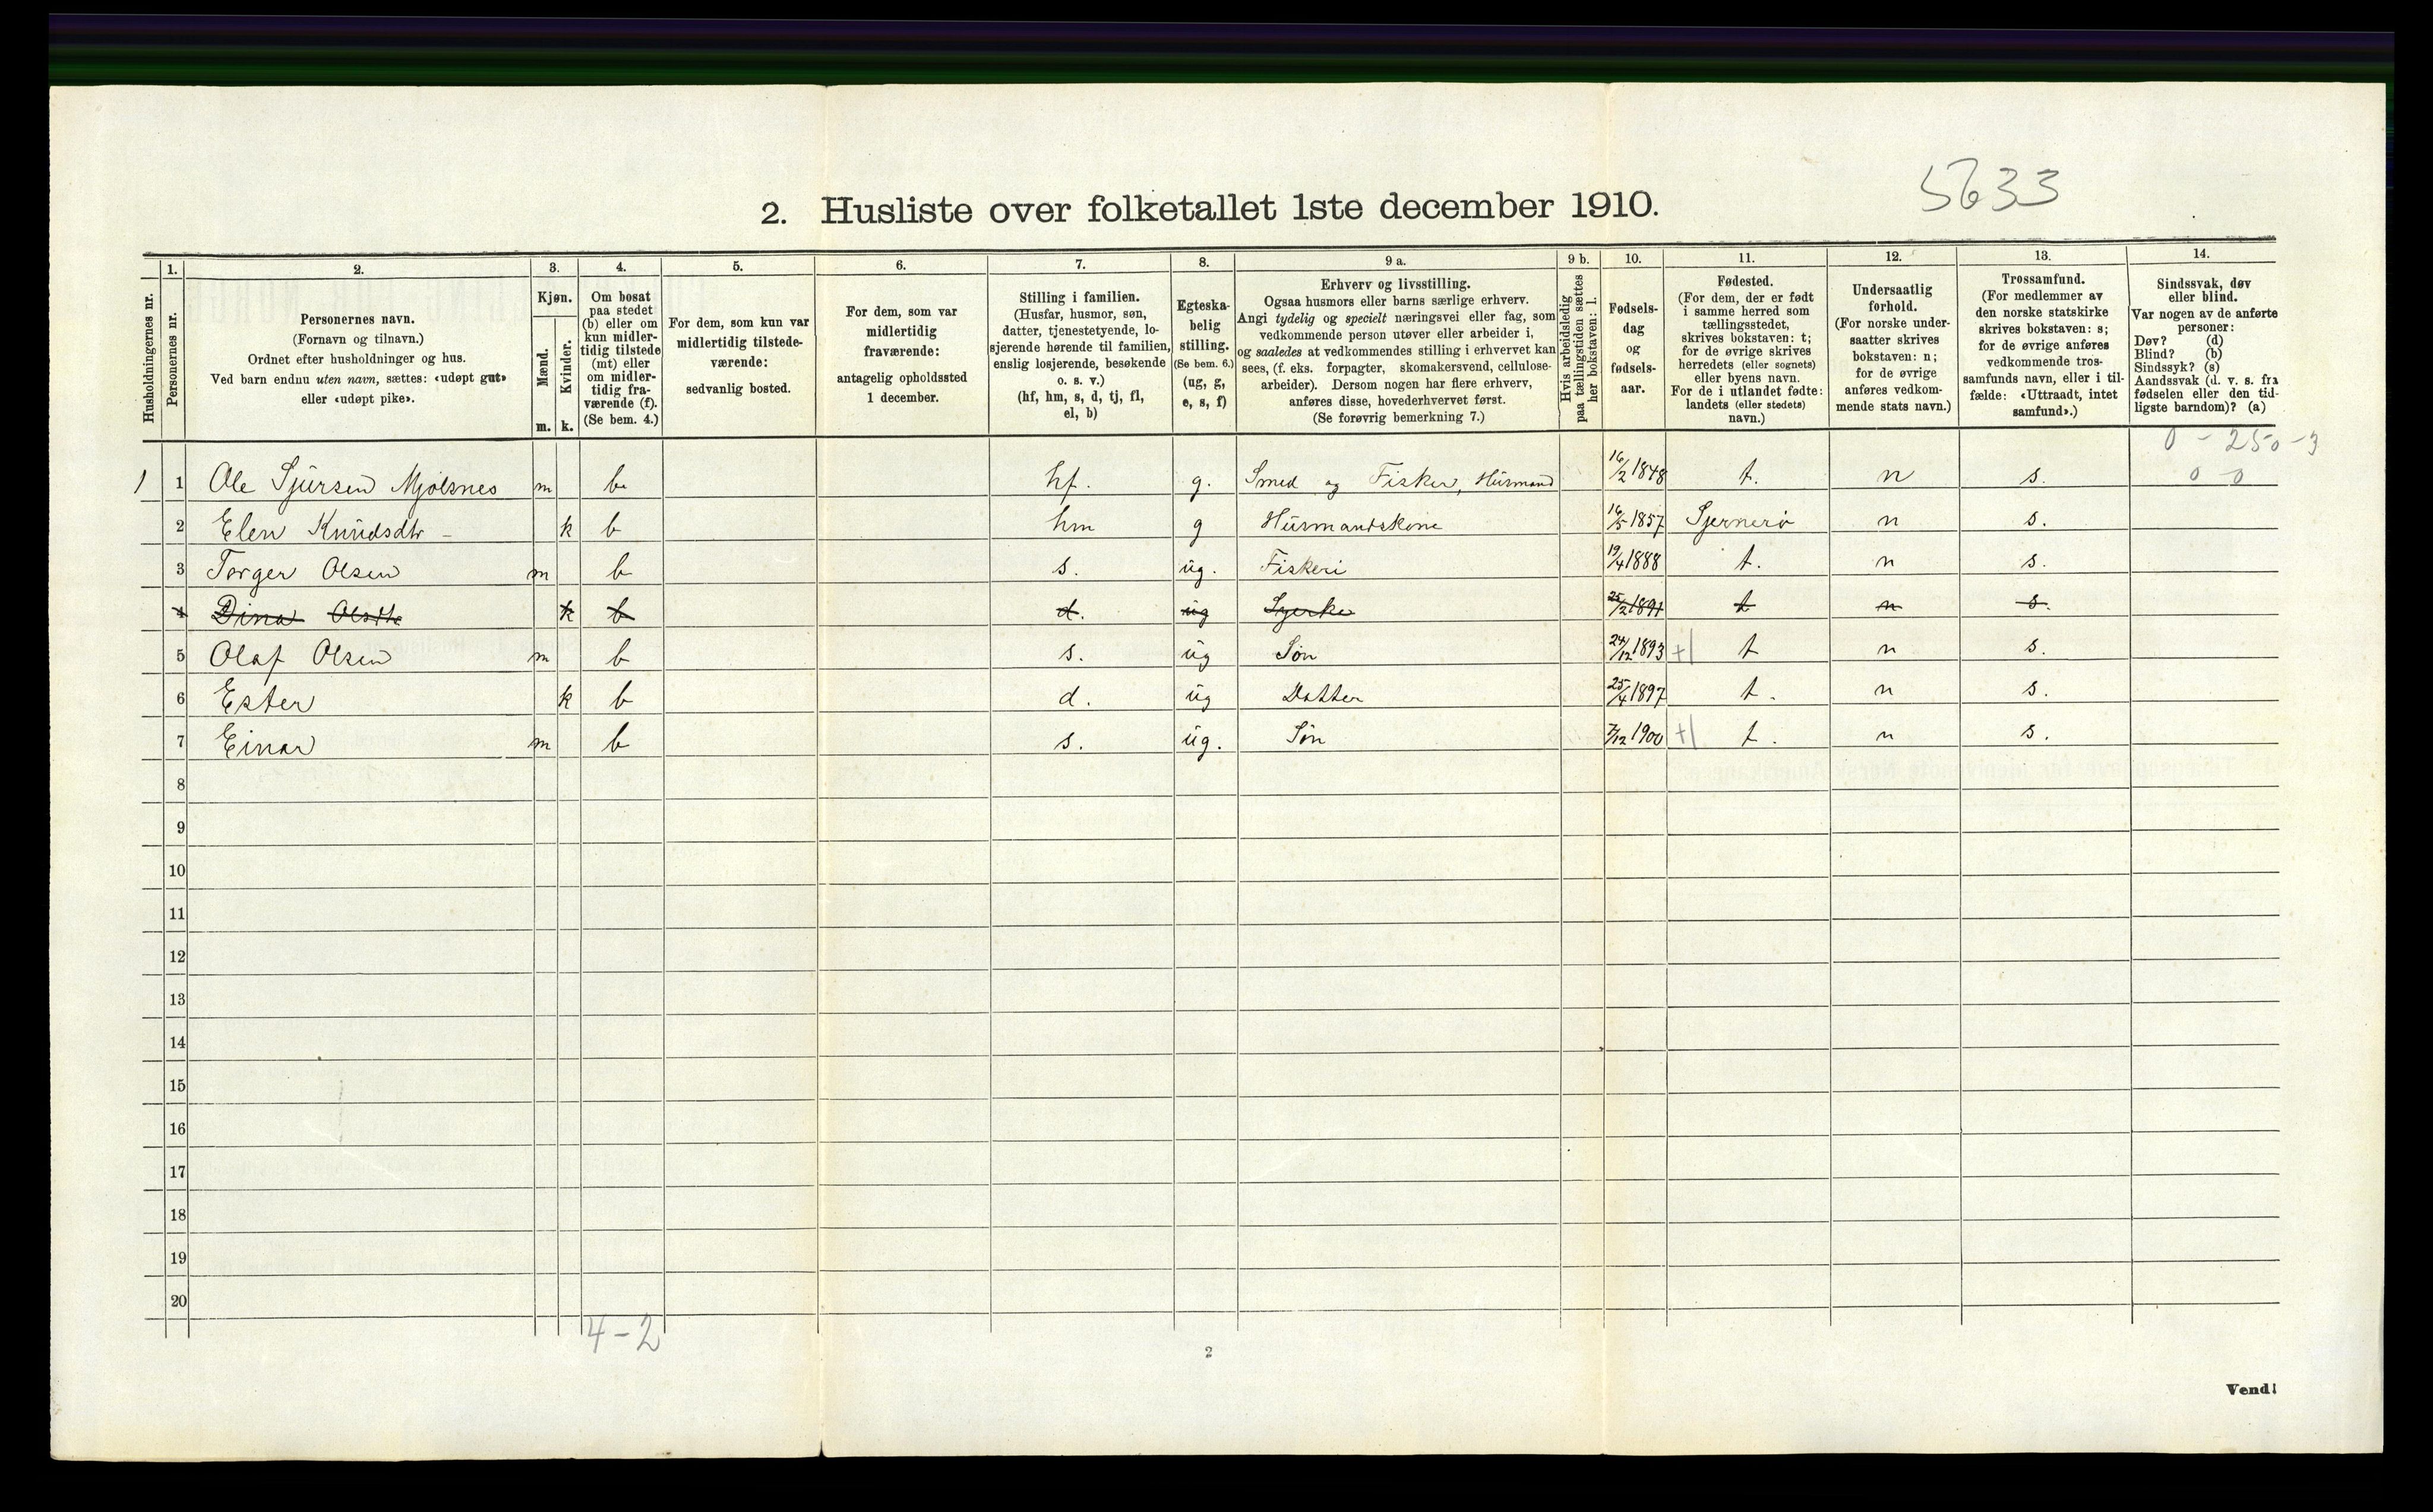 5633
2. Husliste over folketallet 1ste december 1910.
Husholdningernes nr.
1. Personernes nr.
2. Personernes navn.
(Fornavn og tilnavn.)
Ordnet efter husholdninger og hus.
Ved barn endnu uten navn, sættes: «udøpt gut»
eller «udøpt pike».
3. Kjøn.
Mænd. m.
Kvinder. k.
4. Om bosat
paa stedet
(b) eller om
kun midler-
tidig tilstede
(mt) eller
om midler-
tidig fra-
værende (f).
(Se bem. 4.)
5. For dem, som kun var
midlertidig tilstede-
værende:
sedvanlig bosted.
6. For dem, som var
midlertidig
fraværende:
antagelig opholdssted
1 december.
7. Stilling i familien.
(Husfar, husmor, søn,
datter, tjenestetyende, lo-
sjerende hørende til familien,
enslig losjerende, besøkende
o. s. v.)
(hf, hm, s, d, tj, fl,
el, b)
8. Egteska-
belig
stilling.
(Se bem. 6.)
(ug, g,
e, s, f)
9 a. Erhverv og livsstilling.
Ogsaa husmors eller barns særlige erhverv.
Angi tydelig og specielt næringsvei eller fag, som
vedkommende person utøver eller arbeider i,
og saaledes at vedkommendes stilling i erhvervet kan
sees, (f. eks. forpagter, skomakersvend, cellulose-
arbeider). Dersom nogen har flere erhverv,
anføres disse, hovederhvervet først.
(Se forøvrig bemerkning 7.)
9 b. Hvis arbeidsledig
paa tællingstiden sættes
her bokstaven: l.
10. Fødsels-
dag
og
fødsels-
aar.
11. Fødested.
(For dem, der er født
i samme herred som
tællingsstedet,
skrives bokstaven: t;
for de øvrige skrives
herredets (eller sognets)
eller byens navn.
For de i utlandet fødte:
landets (eller stedets)
navn.)
12. Undersaatlig
forhold.
(For norske under-
saatter skrives
bokstaven: n;
for de øvrige
anføres vedkom-
mende stats navn.)
13. Trossamfund.
(For medlemmer av
den norske statskirke
skrives bokstaven: s;
for de øvrige anføres
vedkommende tros-
samfunds navn, eller i til-
fælde: «Uttraadt, intet
samfund».)
14. Sindssvak, døv
eller blind.
Var nogen av de anførte
personer:
Døv? (d)
Blind? (b)
Sindssyk? (s)
Aandssvak (d. v. s. fra
fødselen eller den tid-
ligste barndom)? (a)
0 - 250 - 3
0 0
1 1 Ole Sjursen Mjølsnes m b hf. g. Smed og Fisker, Husmand 16/2 1848 t. n s.
2 Elen Knudsdtr - k b hm g Husmandskone 16/5 1857 Sjernerø n s.
3 Torger Olsen m b s. ug. Fiskeri 19/4 1888 t. n s.
4 Dina Olsdtr k b d. ug Syerke 25/2 1891 t n s.
5 Olaf Olsen m b s. ug Søn 24/12 1893 +1 t n s.
6 Ester k b d. ug Datter 25/4 1897 t. n s.
7 Einar m b s. ug. Søn 7/12 1900 +1 t. n s.
8
9
10
11
12
13
14
15
16
17
18
19
20
4-2
2
Vend!